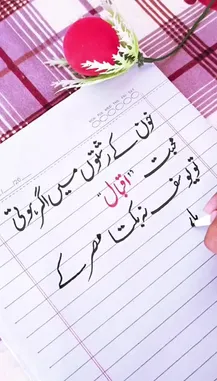 خون کے رشتوں میں اگر ہوتی
محبت "اقبال"
تو یوسف نہ بکتا مصر کے